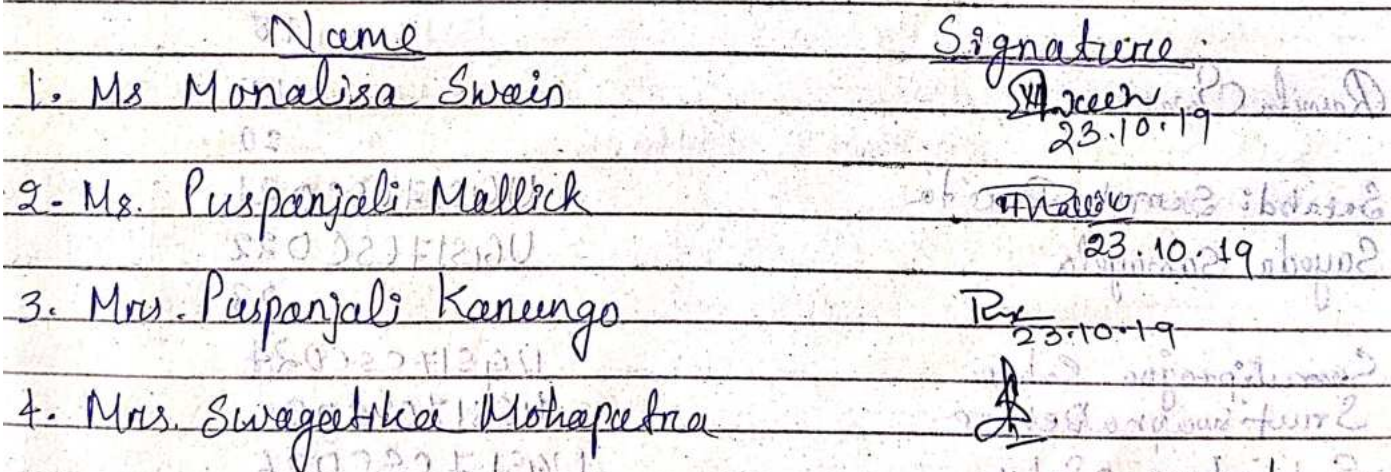 Name Signature
1. Ms Monalisa Swain
23.10.19
2- Ms. Puspanjali Mallick
23.10.19
3. Mrs. Puspanjali Kanungo
23.10.19
4. Mrs. Swagatika Mohapatra